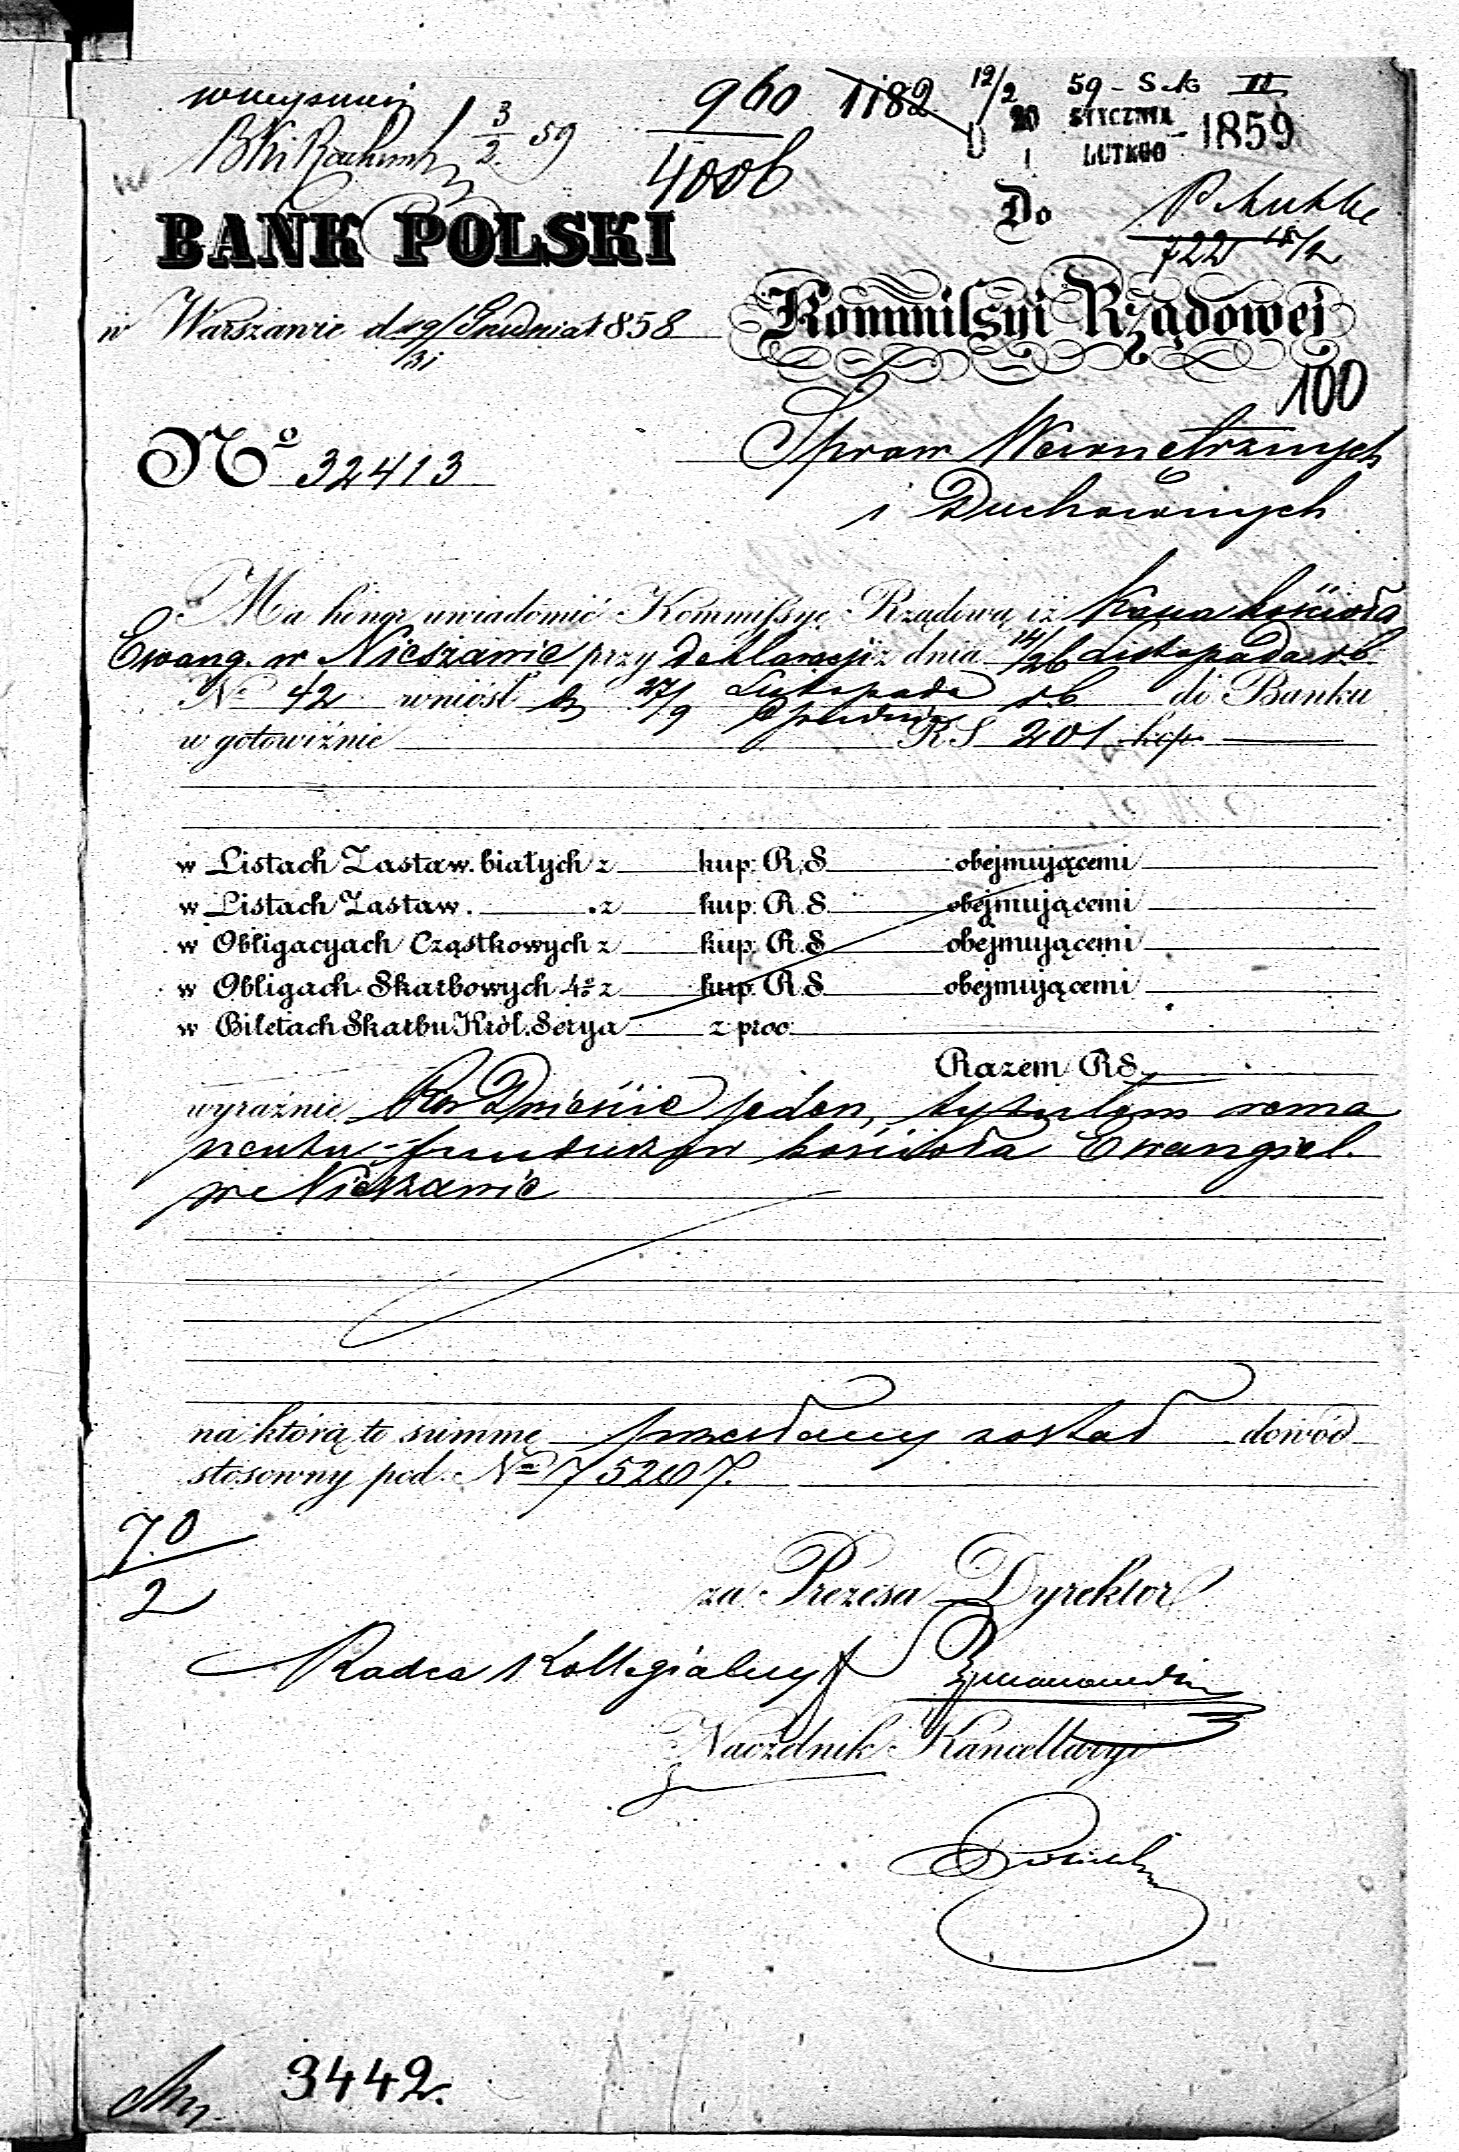 3/2 59
960 1182 12/2 59 - S.k. II
4006
20 STYCZNIA
1 LUTEGO 1859
BANK POLSKI
Do
722 18/2
w Warszawie d 19/31 Grudnia 1858
Kommissyi Rządowej
100
Spraw Wewnętrznych
i Duchownych
No 32413
Ma honor uwiadomić Kommissyę Rządową iż Kassa kościoła
Ewang. w Nieszawie przy deklaracyi z dnia 14/26 Listopada r.b.
No 42 wniósł d. 27/9 Listopada/Grudnia r.b. do Banku
w gotowiźnie RS 201 kop.
w Listach Zastaw. białych z kup. R.S obejmującemi
w Listach Zastaw. z kup. R.S obejmującemi
w Obligacyach Cząstkowych z kup. R.S obejmującemi
w Obligach Skarbowych 4% z kup. R.S obejmującemi
w Biletach Skarbu Król. Serya z proc.
Razem RS.
wyraźnie Rsr Dwieście jeden, tytułem rema
nentu funduszów kościoła Ewangiel.
w Nieszawie
na którą to summę przesłany został dowód
stosowny pod No 75207.
70
2
za Prezesa Dyrektor
Radca Kollegialny
Naczelnik Kancellaryi
3442.